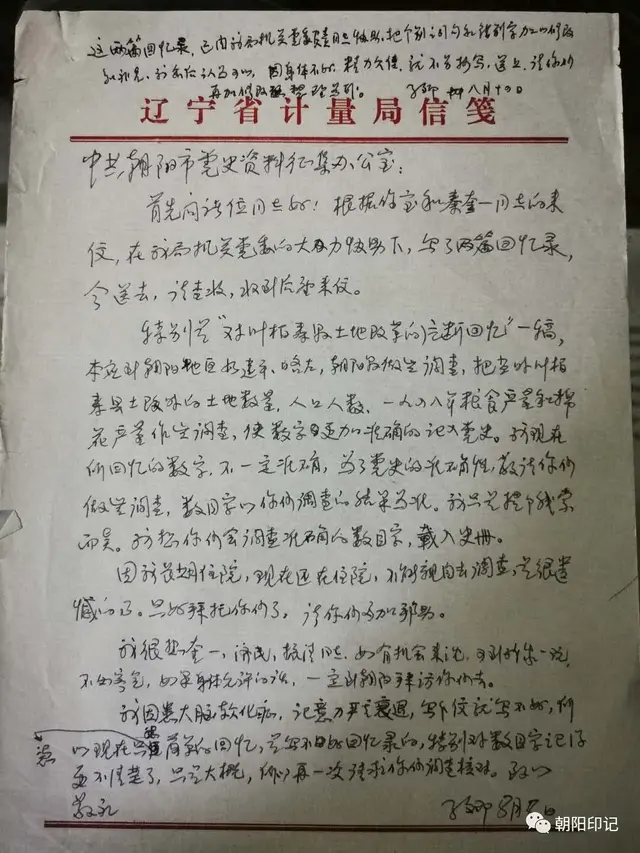 这两篇回忆录，已由我局机关党委负责同志协助，把个别词句和错别字加以修改
和补充，我亦认为可以，因身体不好，精力欠佳，就不另抄写，送上，请你们
再加修改整理
八月十日
辽宁省计量局信笺
中共朝阳市党史资料征集办公室：
首先向诸位同志好！根据你室和秦奎一同志的来
信，在我局机关党委的大力协助下，写了两篇回忆录，
今送去，请查收，收到后亦来信。
特别是“对叶柏寿县土地改革的片断回忆”一稿，
本应到朝阳地区和建平、喀左、朝阳县做些调查，把当时叶柏
寿县土改时的土地数量，人口人数、一九四八年粮食产量和棉
花产量作些调查，使数字更加准确的记入党史。我现在
所回忆的数字，不一定准确，为了党史的准确性，敬请你们
做些调查，数目字以你们调查的结果为准。我只是提个线索
而矣。我想你们会调查准确的数目字，载入史册。
因我长期住院，现在还在住院，不能亲自去调查，是很遗
憾的了。只好拜托你们了，请你们多加帮助。
我很想奎一、济民、振清同志，如有机会来沈，可到我家一玩，
不必客气，如果身体允许的话，一定到朝阳拜访你们去。
我因患大脑软化病，记意力严重衰退，写个信就写不好，所
以现在是写不好回忆录的，特别对数目字记得
更不清楚了，只是大概，所以再一次请求你们调查核对。致以
敬礼
朝阳印记